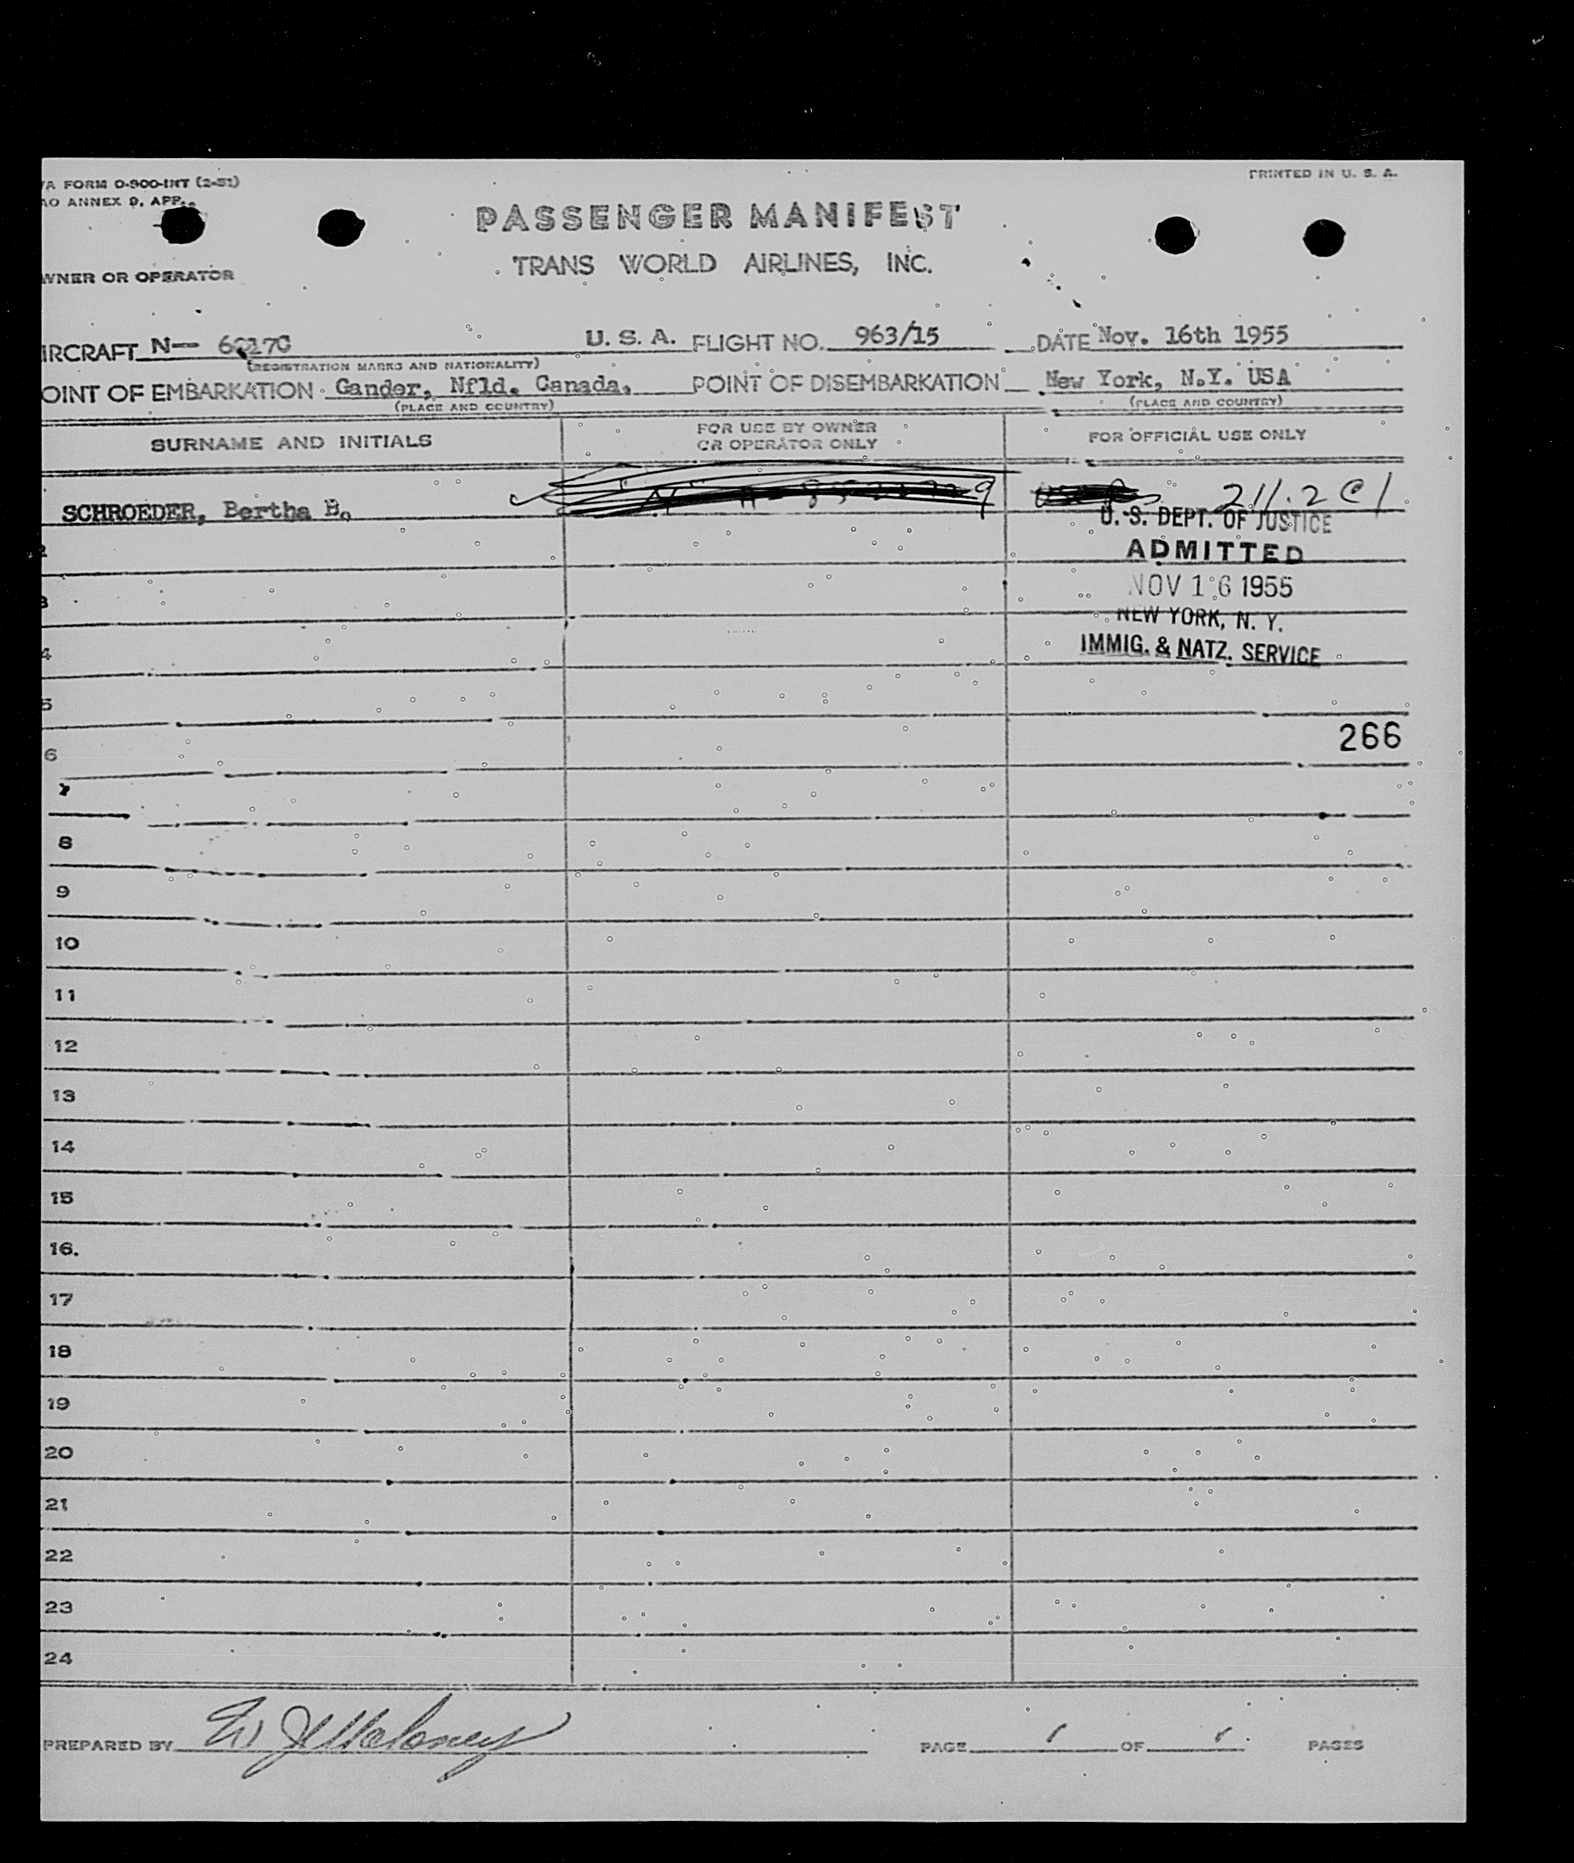 PRINTED IN U. S. A.
A FORM O-900-INT (2-51)
AO ANNEX 9, APP.
PASSENGER MANIFEST
TRANS WORLD AIRLINES, INC.
WNER OR OPERATOR
IRCRAFT N— U. S. A. FLIGHT NO. 963/15 DATE Nov. 16th 1955
(REGISTRATION MARKS AND NATIONALITY)
OINT OF EMBARKATION Gander, Nfld. Canada. POINT OF DISEMBARKATION New York, N.Y. USA
(PLACE AND COUNTRY) (PLACE AND COUNTRY)
SURNAME AND INITIALS FOR USE BY OWNER OR OPERATOR ONLY FOR OFFICIAL USE ONLY
SCHROEDER, Bertha B. 211.2 @ 1
U. S. DEPT. OF JUSTICE
ADMITTED
NOV 16 1955
NEW YORK, N. Y.
IMMIG. & NATZ. SERVICE
2
3
4
5
266
6
7
8
9
10
11
12
13
14
15
16.
17
18
19
20
21
22
23
24
PREPARED BY Maloney PAGE 1 OF 1 PAGES